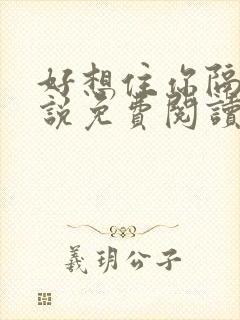 好想住你隔
說免費閱讀
義玥公子